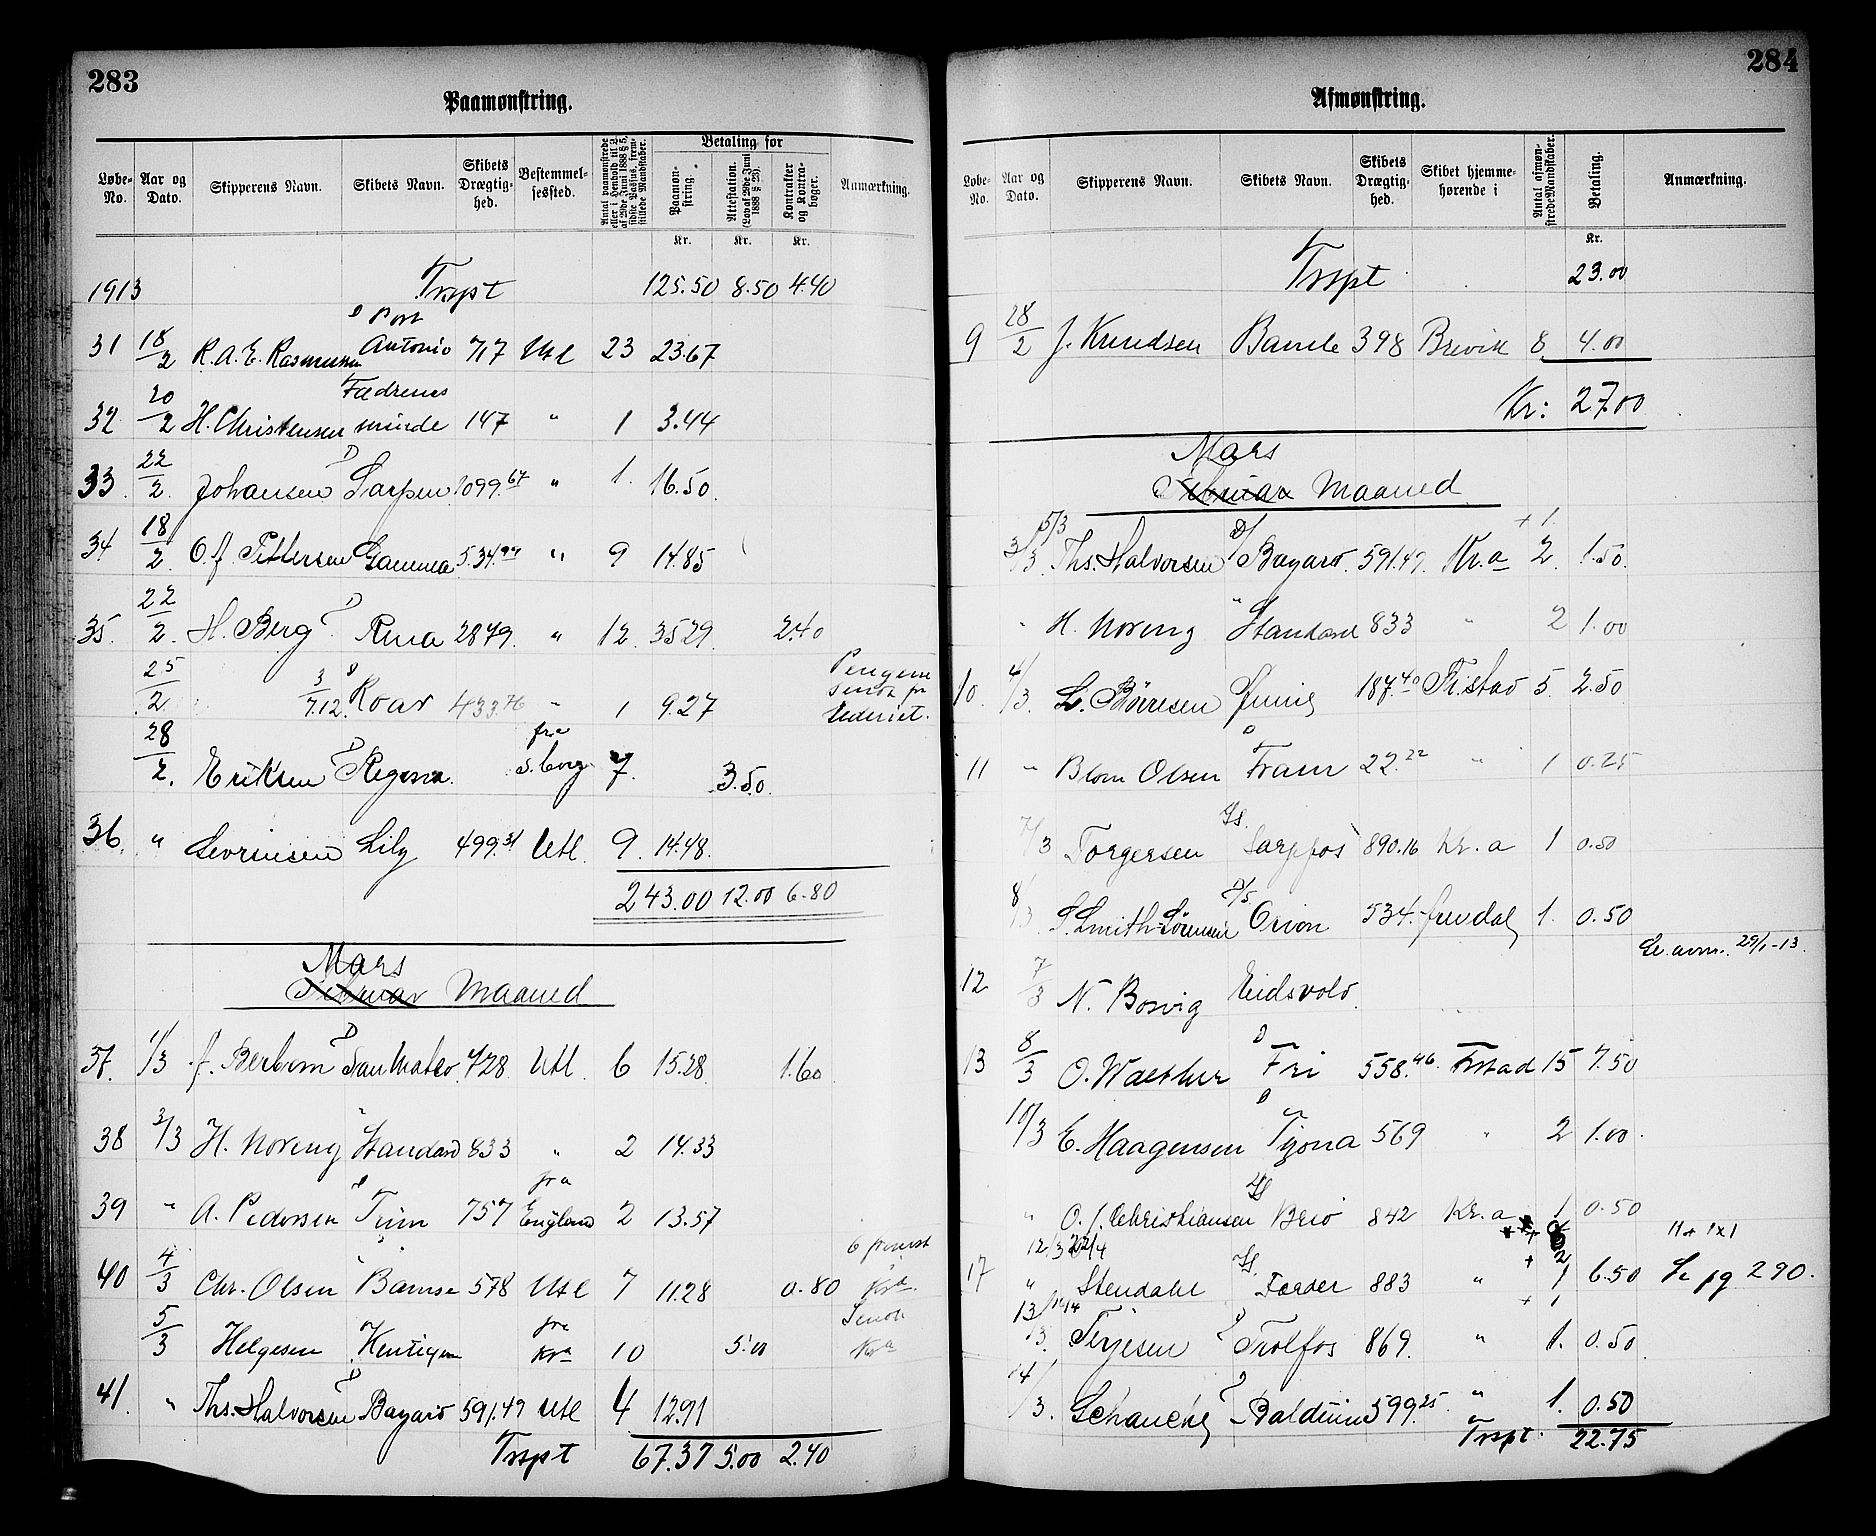 283
Paamønstring.
Løbe-No.
Aar og Dato.
Skipperens Navn.
Skibets Navn.
Skibets Drægtig-hed.
Bestemmel-sessted.
Antal paamønstrede eller i Henhold til Lov af 29de Juni 1888 § 5, sidste Passus, frem-stillede Mandskaber.
Betaling for
Paamøn-string.
Attestation. (Lov af 29de Juni 1888 § 23).
Kontrakter og Kontra-bøger.
Anmærkning.
Kr. Kr. Kr.
1913 Trspt 125.50 8.50 4.40
31 18/2 R.A.E. Rasmussen D Port Antonio 717 Utl 23 23.67
32 20/2 H. Christensen Fædrenes minde 147 " 1 3.44
33. 22/2. Johansen D Sarpen 1099.67 " 1. 16.50.
34 18/2. O.J. Pettersen Gamma 534.97 " 9 14.85
35. 22/2. H. Berg D Rena 2879. " 12. 35 29. 2.40
25/2 3/7.12. Roar 433.76 " 1 9.27 Pengene sendt fr rederiet.
28/2. Eriksen D Regina. fra S.borg 7. 3.50.
36. " Sevrinsen Lily 499.31 Utl. 9. 14.48.
243.00 12.00 6.80
Mars
Februar Maaned
37. 1/3 J. Berbom D San Mateo 728 Utl 6 15.28. 1.60
38 3/3 H. Noreng " Standard 833 " 2 14.33
39 " A. Pedersen D Trim 757 fra England 2 13.57
40 4/3 Chr. Olsen " Bamse 578 Utl 7 11.28 0.80 6 fremst Kra.
5/3 Helgesen Kentigern fra Kra 10 5.00 Sendt Kra
41. " Ths. Halvorsen D Bayard 591.49 Utl 4 12.91
Trspt 67.37 5.00 2.40
284
Afmønstring.
Løbe-No.
Aar og Dato.
Skipperens Navn.
Skibets Navn.
Skibets Drægtig-hed.
Skibet hjemme-hørende i
Antal afmøn-strede Mandskaber.
Betaling.
Anmærkning.
Kr.
Trspt 23.00
9 28/2 J. Knudsen Bamle 398 Brevik 8 4.00
Kr: 27.00
Mars
Februar Maaned
5/3 + 1.
3/3. Ths. Halvorsen D/ Bayard. 591.49. Kr.a 2. 1.50.
" H. Noreng " Standard 833 " 2 1.00
10. 4/3. L. Børresen Junis 187.40 Fr.stad 5. 2.50
11 " Blom Olsen D Fram 22.22 " 1 0.25
7/3 Torgersen D/S. Sarpfos 890.16 Kr.a 1 0.50
8/3. S. Smith-Sørensen D/S Orion 534. Grendal 1. 0.50
Se anm. 29/1-13.
12 7/3 N. Bosvig Eidsvold.
13 8/3 O. Walther D Fri 558.46. Fr.stad 15 7.50
10/3 E. Haagensen D Tyona 569 " 2 1.00.
" O.J. Christiansen D/S Brid 842 Kr.a 1 0.50
12/3 22/4 11 + 1x1
17 " Stendahl D/S. Færder 883 " 1 6.50 Se pg 290.
13/3. 14/4 + 1
Terjesen D Trolfos 869. " 1. 0.50
14/3. Schanche D Balduin 599.25. " 1. 0.50
Trspt. 22.75